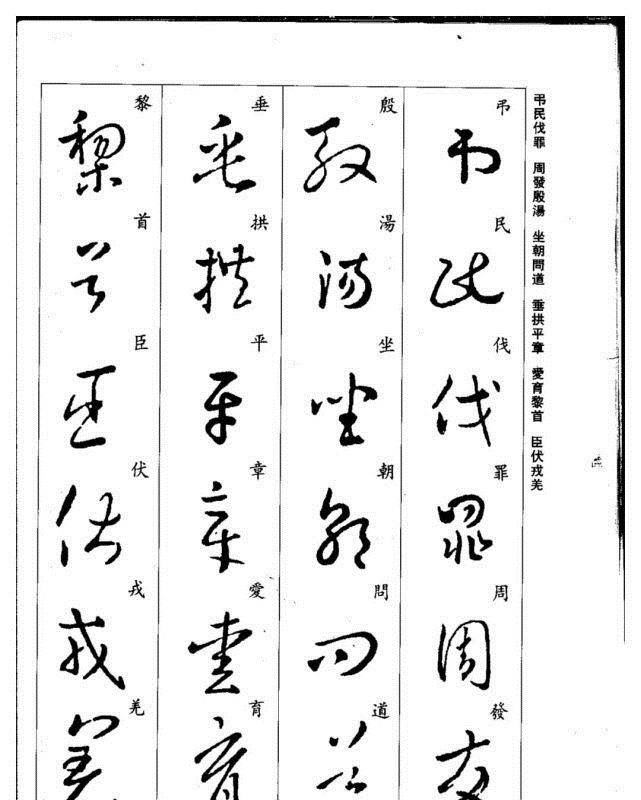 弔民伐罪　周發殷湯　坐朝問道　垂拱平章　愛育黎首　臣伏戎羌
弔民伐罪周發
殷湯坐朝問道
垂拱平章愛育
黎首臣伏戎羌